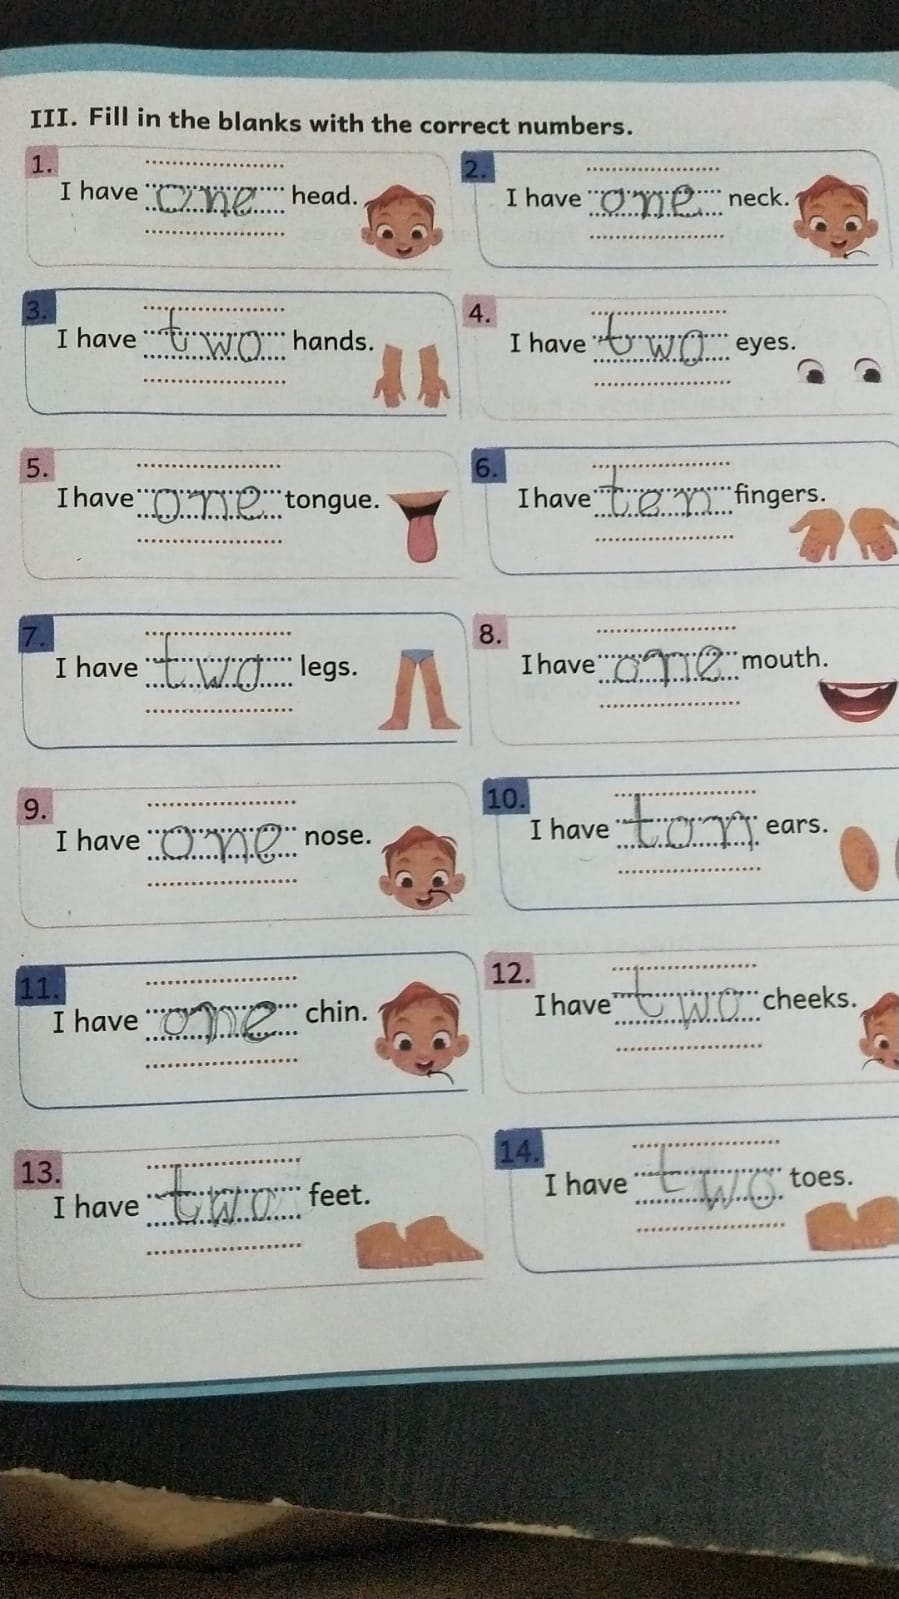 III. Fill in the blanks with the correct numbers.
1. I have one head.
2. I have one neck.
3. I have two hands.
4. I have two eyes.
5. I have one tongue.
6. I have ten fingers.
7. I have two legs.
8. I have one mouth.
9. I have one nose.
10. I have ton ears.
11. I have one chin.
12. I have two cheeks.
13. I have two feet.
14. I have two toes.